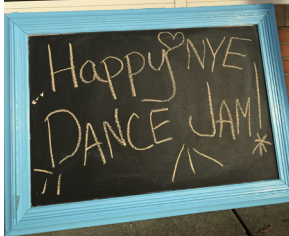 Happy NYE
DANCE JAM!